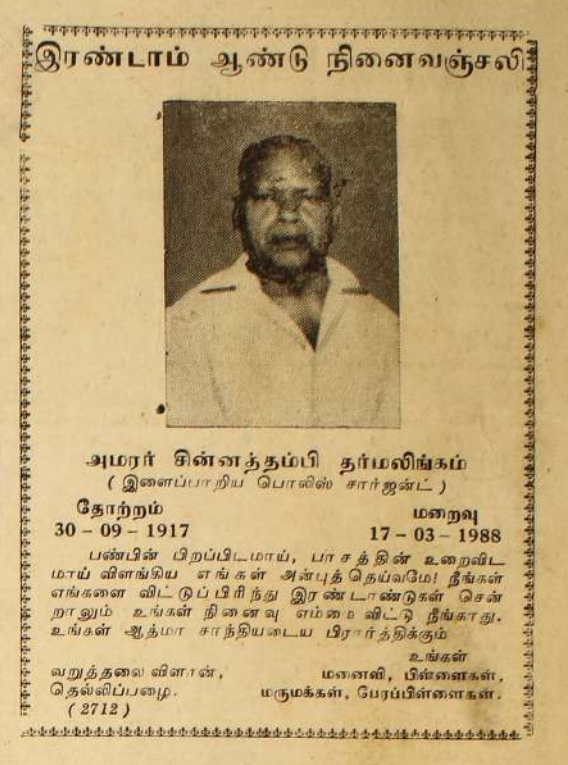 இரண்டாம் ஆண்டு நினைவஞ்சலி
அமரர் சின்னத்தம்பி தர்மலிங்கம்
( இளைப்பாறிய பொலிஸ் சார்ஜன்ட் )
தோற்றம் மறைவு
30 - 09 - 1917 17 - 03 - 1988
பண்பின் பிறப்பிடமாய், பாசத்தின் உறைவிட
மாய் விளங்கிய எங்கள் அன்புத் தெய்வமே! நீங்கள்
எங்களை விட்டுப்பிரிந்து இரண்டாண்டுகள் சென்
றாலும் உங்கள் நினைவு எம்மை விட்டு நீங்காது.
உங்கள் ஆத்மா சாந்தியடைய பிரார்த்திக்கும்
உங்கள்
வறுத்தலை விளான், மனைவி, பிள்ளைகள்,
தெல்லிப்பழை. மருமக்கள், பேரப்பிள்ளைகள்.
( 2712 )